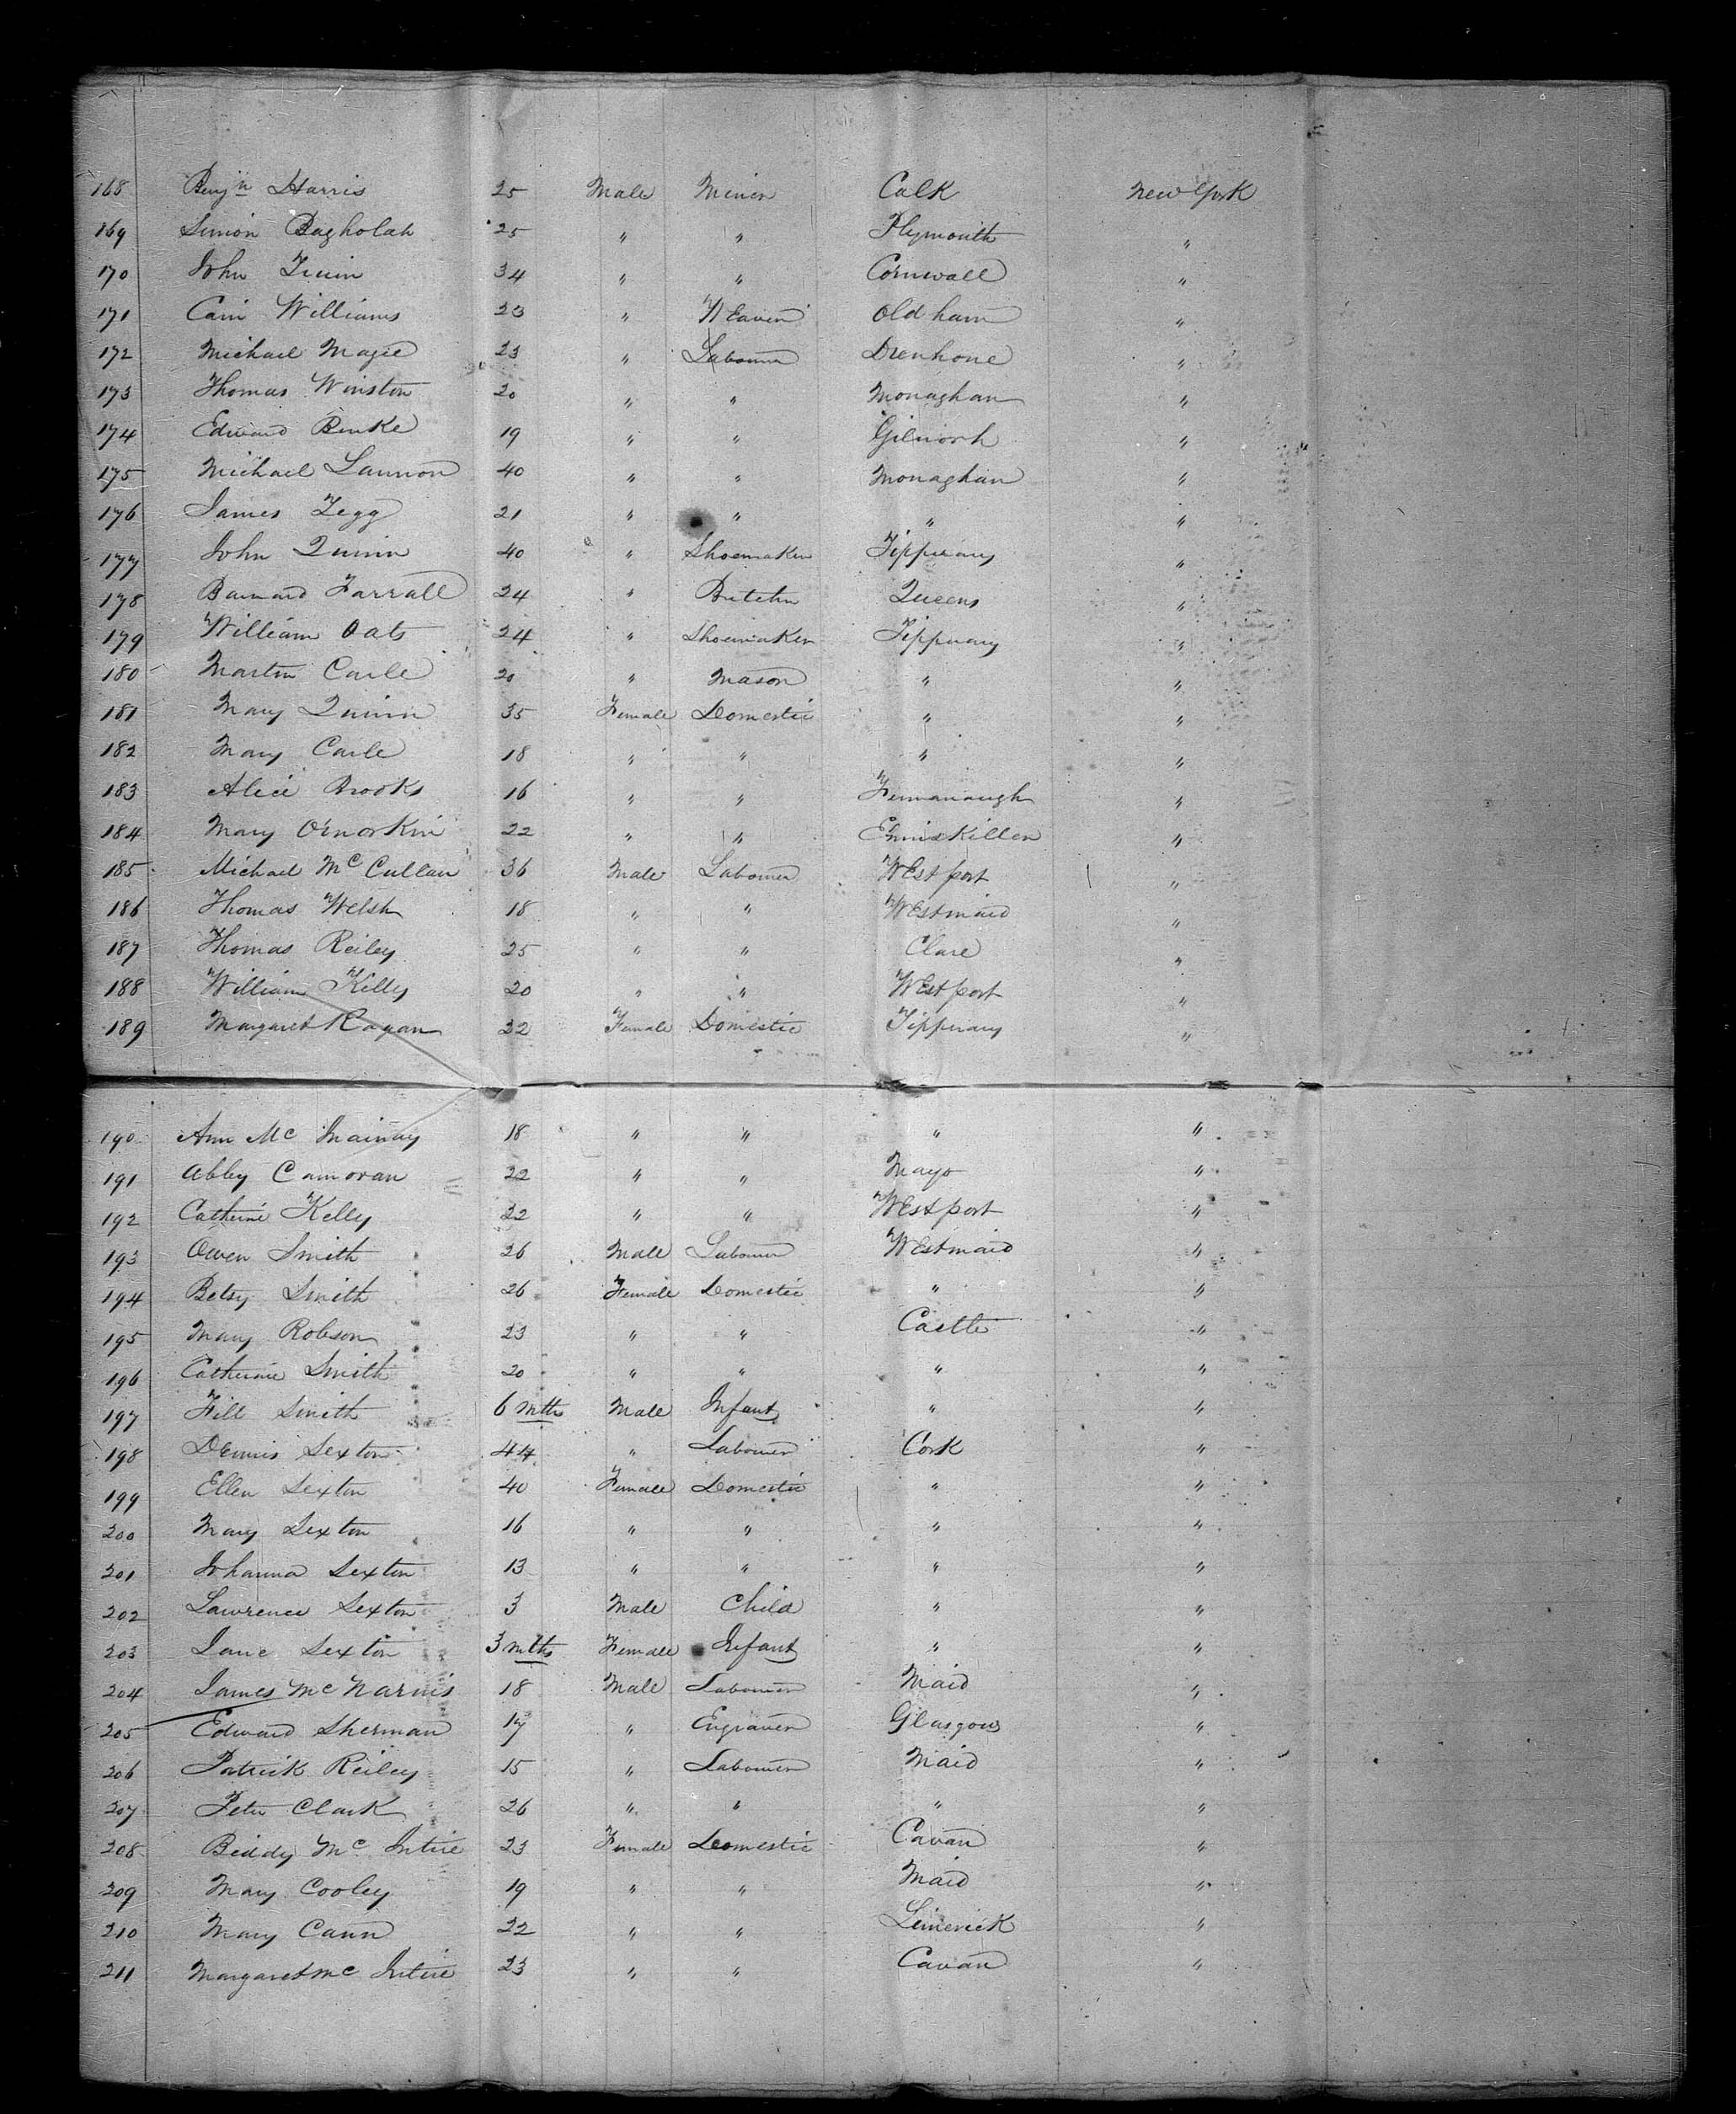 168 Benjn Harris 25 Male Miner Calk New York
169 Simion Bagholah 25 " " Plymouth "
170 John 34 " " Cornwall "
171 Cain Williams 23 " Weaver Old ham "
172 Michael Magee 23 " Labourer "
173 Thomas Winston 20 " " Monaghan "
174 Edward Burke 19 " " "
175 Michael Lannon 40 " " Monaghan "
176 James Legg 21 " " " "
177 John Quinn 40 " Shoemaker Tipperary "
178 Barnard Farrall 24 " Butcher Queens "
179 William Oats 24 " Shoemaker Tipperary "
180 Martin Carle 20 " Mason " "
181 Mary Quinn 35 Female Domestic " "
182 Mary Carle 18 " " " "
183 Alice Brooks 16 " " Fermanaugh "
184 Mary 22 " " Enniskillen "
185 Michael Mc Cullan 36 Male Labourer West port "
186 Thomas Welsh 18 " " Westmaid "
187 Thomas Reiley 25 " " Clare "
188 William Kelly 20 " " West port "
189 Margaret Ragan 32 Female Domestic Tipperary "
190 Ann Mc 18 " " " "
191 Abby Camoran 22 " " Mayo "
192 Catherine Kelly 32 " " West port "
193 Owen Smith 26 Male Labourer Westmaid "
194 Betsy Smith 26 Female Domestic " "
195 Mary Robson 23 " " Castle "
196 Catherine Smith 20 " " " "
197 Fill Smith 6 mths Male Infant " "
198 Dennis Sexton 44 " Labourer Cork "
199 Ellen Sexton 40 Female Domestic " "
200 Mary Sexton 16 " " " "
201 Johanna Sexton 13 " " " "
202 Lawrence Sexton 3 Male Child " "
203 Jane Sexton 3 mths Female Infant " "
204 James Mc Narnis 18 Male Labourer Maid "
205 Edward Sherman 17 " Engraver Glasgow "
206 Patrick Reiley 15 " Labourer Maid "
207 Peter Clark 26 " " " "
208 Biddy Mc Intire 23 Female Domestic Cavan "
209 Mary Cooley 19 " " Maid "
210 Mary Cann 22 " " Limerick "
211 Margaret Mc Intire 23 " " Cavan "